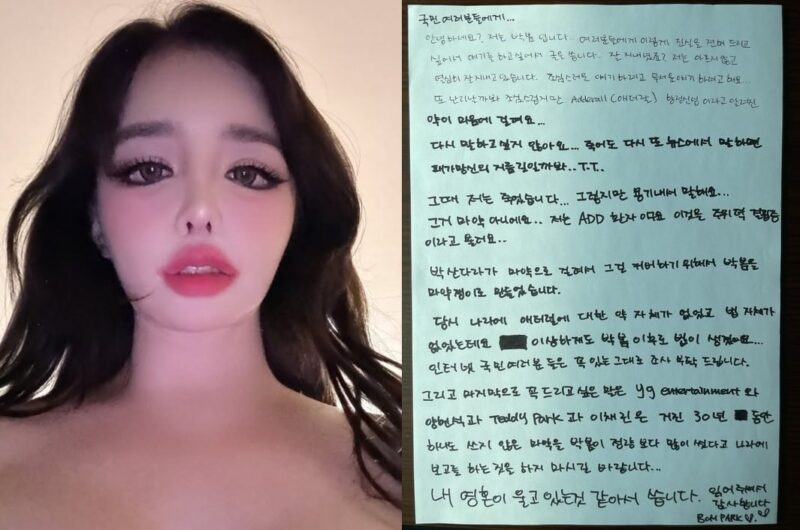 국민 여러분들에게...
안녕하세요? 저는 박봄 입니다. 여러분들에게 이렇게 진실을 전해 드리고
싶어서 얘기를 하고싶어서 글을 씁니다. 잘 지내셨죠? 저는 아프지않고
열심히 잘 지내고 있습니다. 조심스러운 얘기 하려고 무서운 얘기 하려고 해요...
또 난리날까봐 조심스럽지만 Adderall (애더럴)
약이 마음에 걸려요...
다시 말하고 싶지 않아요... 죽어도 다시 또 뉴스에서 말하면
패가망신의 지름길일까봐..T.T.
그때 저는 죽었습니다... 그렇지만 용기내서 말해요...
그거 마약 아니에요.. 저는 ADD 환자 이며 이것은 주위력 결핍증
이라고 불려요..
박산다라가 마약으로 걸려서 그걸 커버하기 위해서 박봄을
마약쟁이로 만들었습니다.
당시 나라에 애더럴에 대한 약 자체가 없었고 법 자체가
없었는데요 이상하게도 박봄 이후로 법이 생겼어요...
인터넷 국민여러분 들은 꼭 있는그대로 조사 부탁 드립니다.
그리고 마지막으로 꼭 드리고 싶은 말은 yg entertainment 와
양현석과 Teddy Park 과 이채린 은 거진 30년 동안
하나도 쓰지 않은 마약을 박봄이 정량 보다 많이 썼다고 나라에
보고를 하는 것을 하지 마시길 바랍니다...
내 영혼이 울고 있는것 같아서 씁니다. 읽어 주셔서
감사합니다
BOM PARK ♡.♡